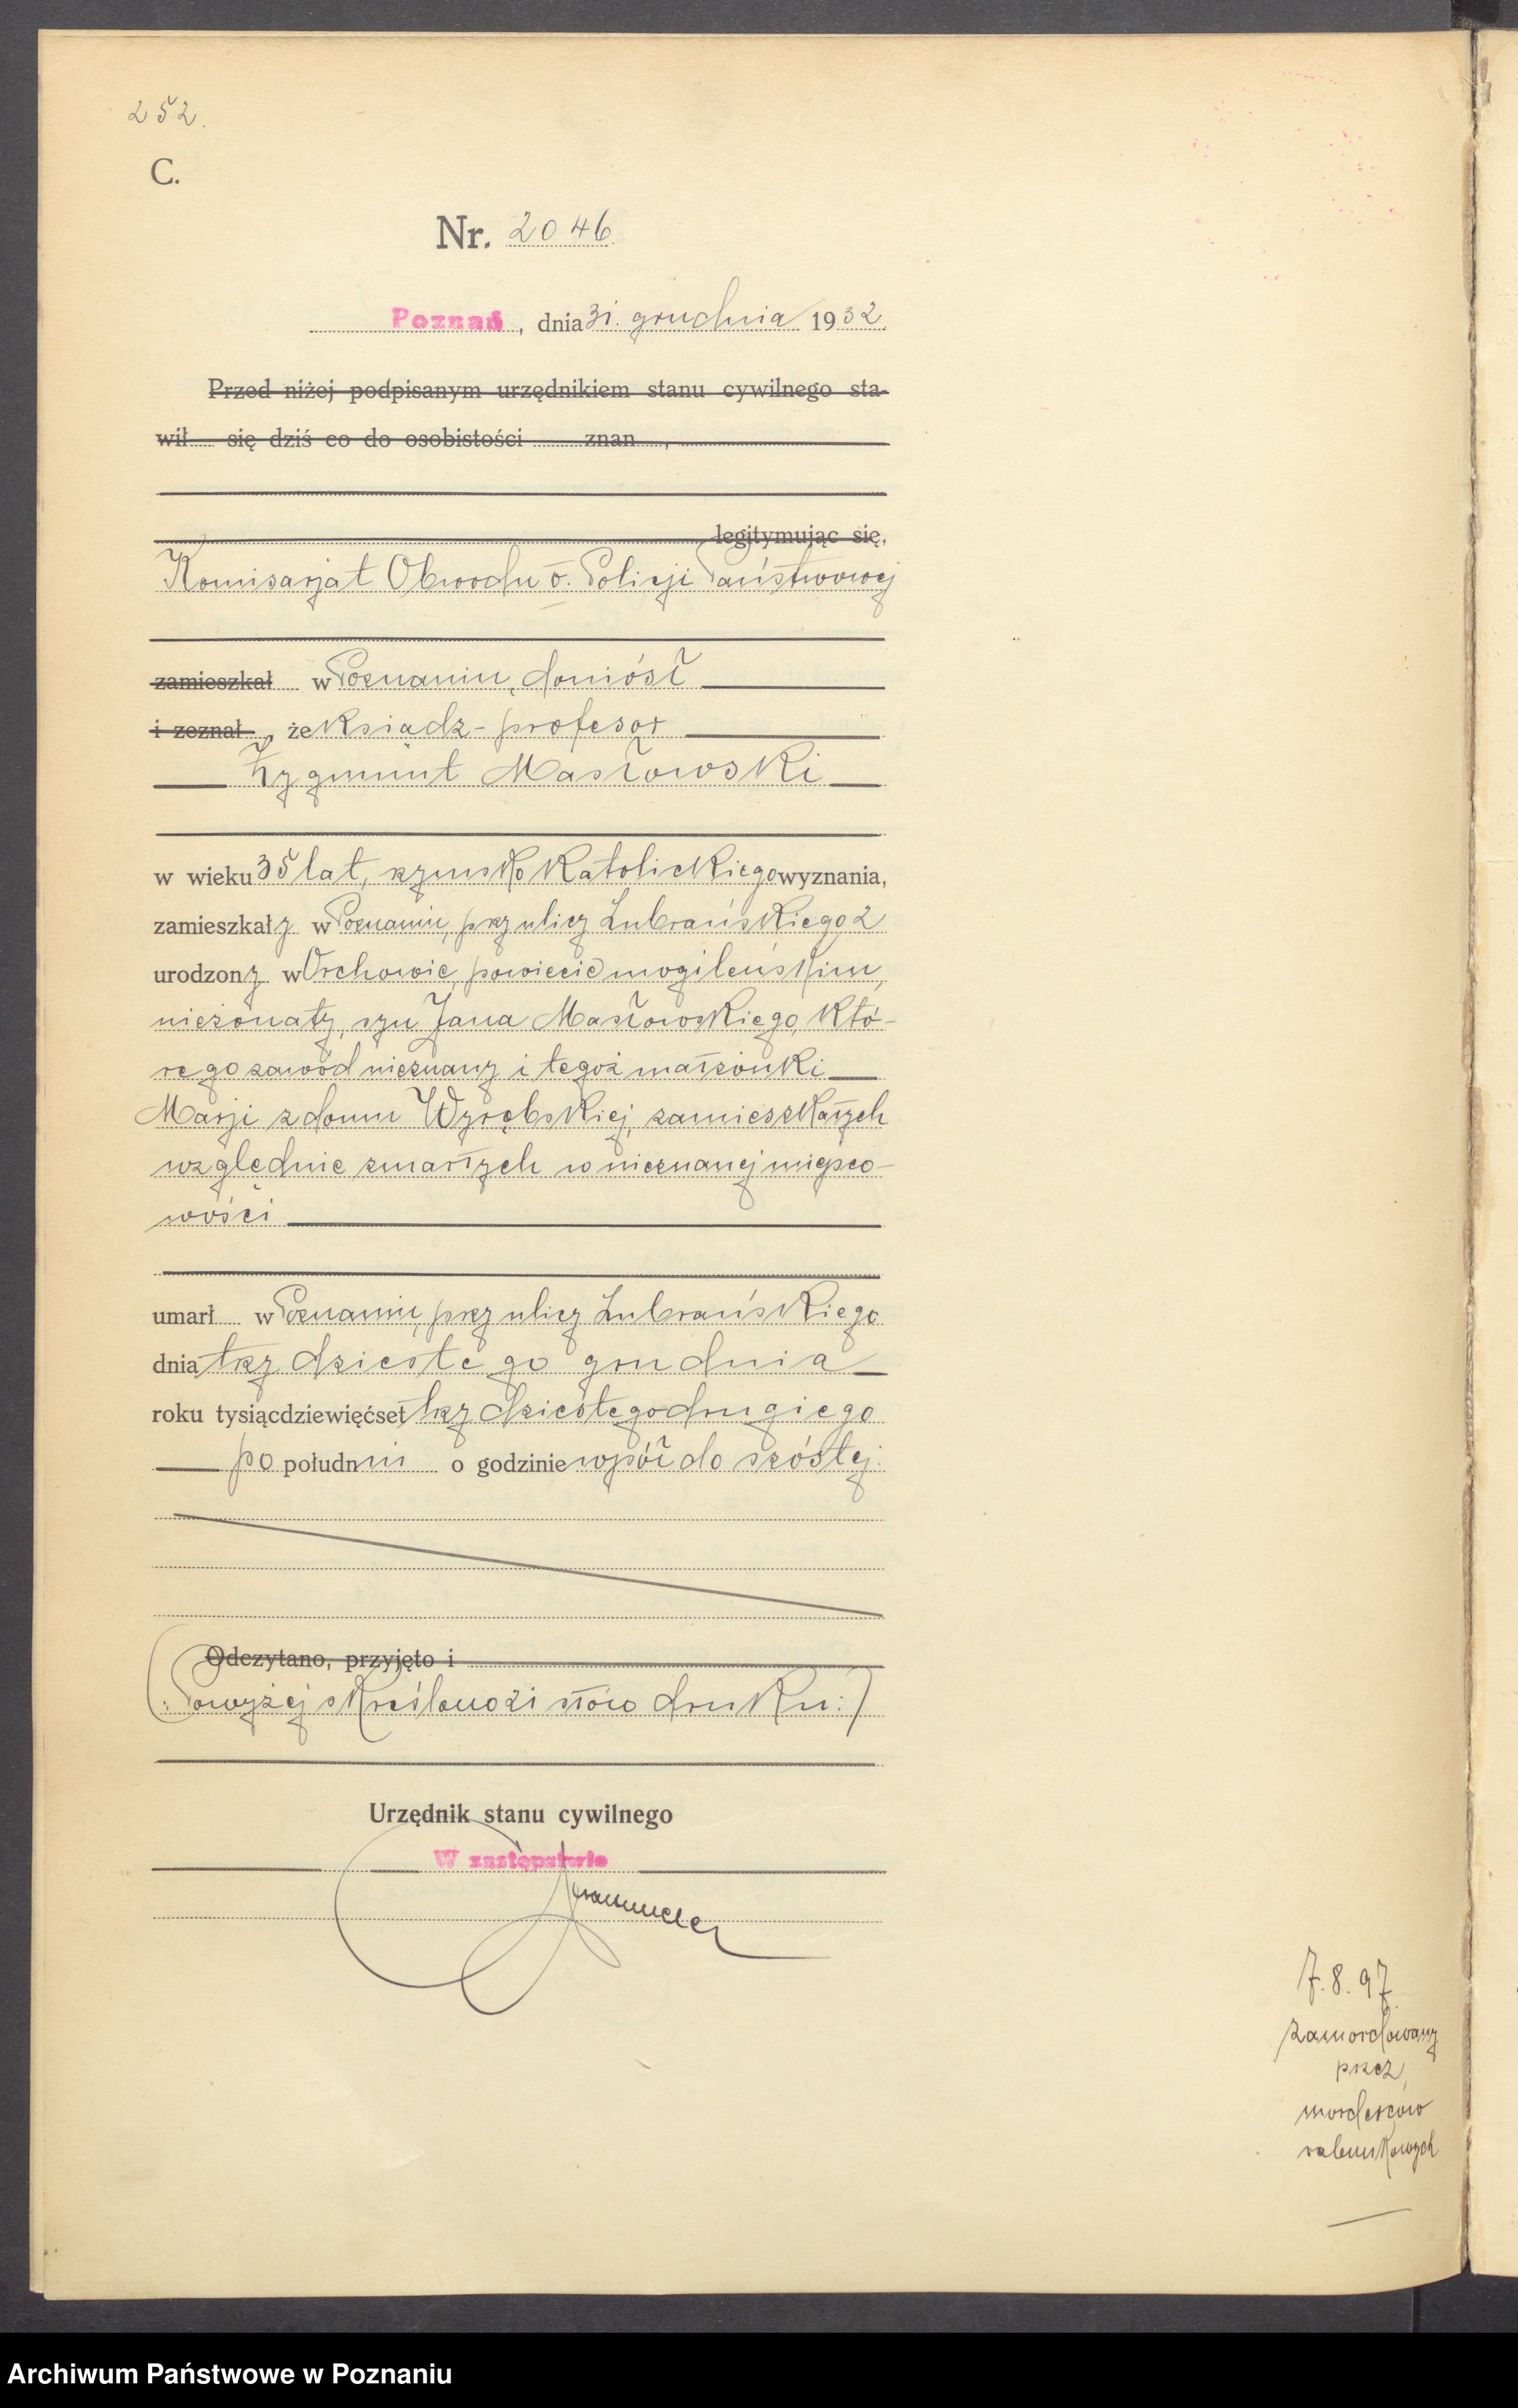 252.
C.
Nr. 2046.
Poznań, dnia 31. grudnia 1932.
Przed niżej podpisanym urzędnikiem stanu cywilnego sta-
wił się dziś co do osobistości znan ,
legitymując się,
Komisarjat Obwodu V. Policji Państwowej
zamieszkał w Poznaniu, doniósł
i zeznał , że ksiądz-profesor
Zygmunt Masłowski
w wieku 35 lat, rzymsko katolickiego wyznania,
zamieszkały w Poznaniu, przy ulicy Lubrańskiego 2
urodzony w Orchowie, powiecie mogileńskim,
nieżonaty, syn Jana Masłowskiego, któ-
rego zawód nieznany i tegoż małżonki
Marji z domu Wyrębskiej, zamieszkałych
względnie zmarłych w nieznanej miejsco-
wości
umarł w Poznaniu, przy ulicy Lubrańskiego
dnia trzydziestego grudnia
roku tysiącdziewięćset trzydziestegodrugiego
po południu o godzinie wpół do szóstej.
Odczytano, przyjęto i
(: Powyżej skreślono 21 słów druku :)
Urzędnik stanu cywilnego
W zastępstwie
7.8.97.
zamordowany
przez
morderców
rabunkowych
Archiwum Państwowe w Poznaniu